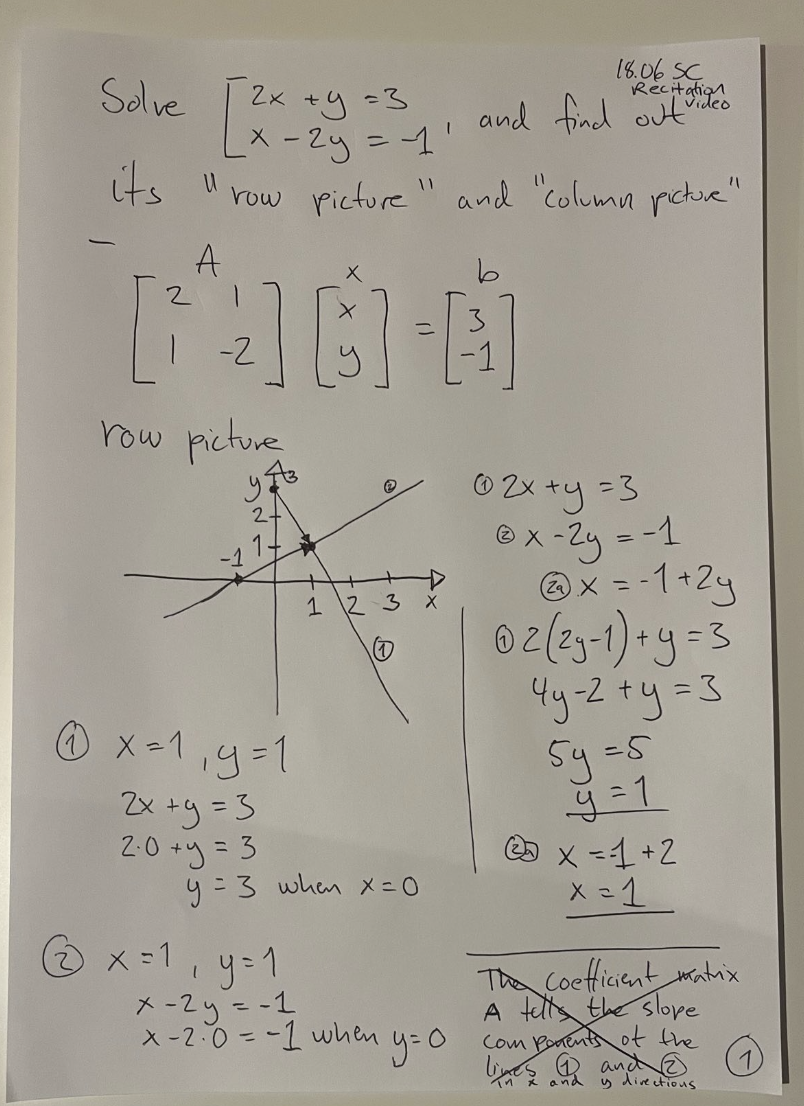 18.06 SC
Recitation
video
Solve [2x + y = 3
x - 2y = -1 , and find out
its "row picture" and "column picture"
-
A x b
[2 1 [x = [3
1 -2] y] -1]
row picture
y 3
2
1
-1
1 2 3 x
②
①
① 2x + y = 3
② x - 2y = -1
②a x = -1 + 2y
① 2(2y-1) + y = 3
4y - 2 + y = 3
5y = 5
y = 1
②a x = -1 + 2
x = 1
① x = 1 , y = 1
2x + y = 3
2·0 + y = 3
y = 3 when x = 0
② x = 1 , y = 1
x - 2y = -1
x - 2·0 = -1 when y = 0
The coefficient matrix
A tells the slope
components of the
lines ① and ②
in x and y directions
①